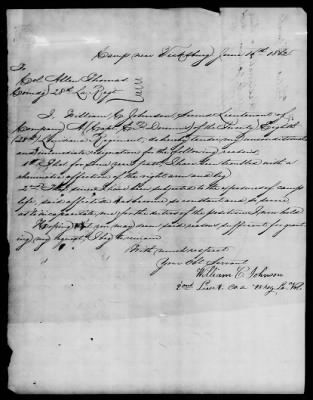 Camp near Vicksburg June 4th 186
To
Col. Allen Thomas
Comdg 28th La Regt
I, William C. Johnson Second Lieutenant of
Company A (Capt. ) of the Twenty Eighth
(28th) Louisiana Regiment, do hereby tender my unconditional
and immediate resignation for the following reasons
1st That for some years past I have been troubled with a
affection of the right arm and leg
2nd That since I have been subjected to the exposure of camp
life, said affection has become so constant and so severe
as to incapacitate me for the duties of the position I now hold
Hoping that you may deem said reasons sufficient for grant-
ing my request, I beg to remain
With much respect
Your Obt Servant
William C Johnson
2nd Lieut. Co A 28 Reg La Vol.